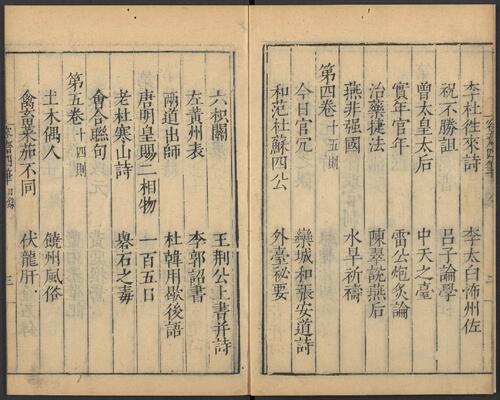 李杜往來詩　李太白怖州佐
祝不勝詛　呂子論學
曾太皇太后　中天之臺
實年官年　雷公炮炙論
治藥捷法　陳翠說燕后
燕非强國　水旱祈禱
第四卷 十五則
今日官冗　欒城和張安道詩
和范杜蘇四公　外臺祕要
六枳關　王荊公上書并詩
左黃州表　李郭詔書
兩道出師　杜韓用歇後語
唐明皇賜二相物　一百五日
老杜寒山詩　礜石之毒
會合聯句
第五卷 十四則
土木偶人　饒州風俗
禽畜菜茄不同　伏龍肝
容齋四筆 目錄 三